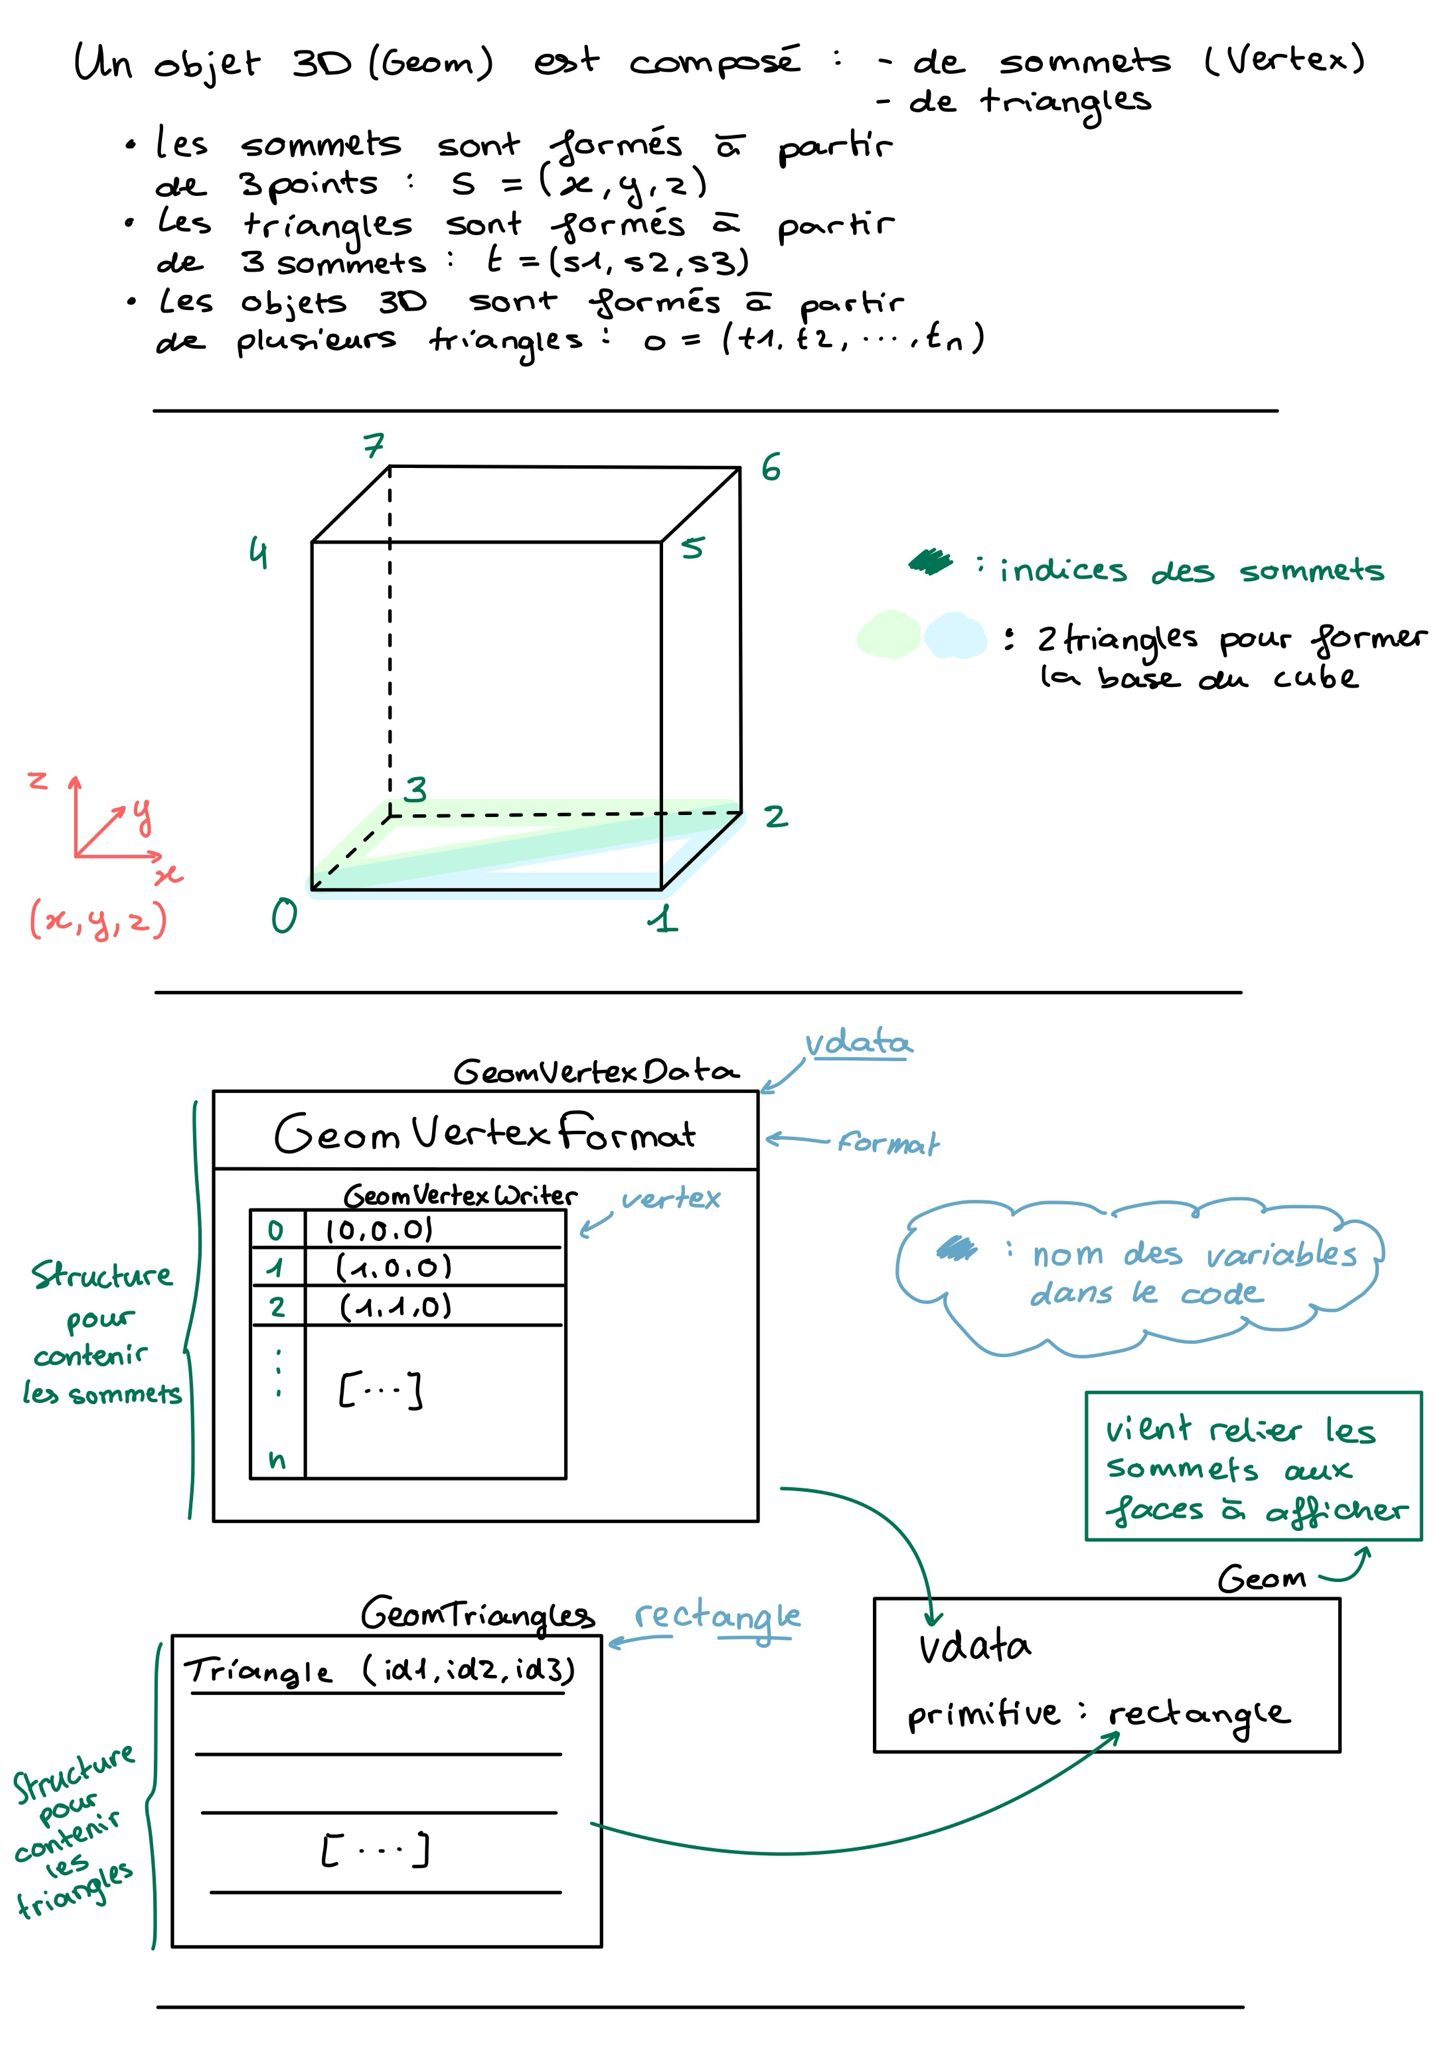 Un objet 3D (Geom) est composé : - de sommets (Vertex)
- de triangles
• Les sommets sont formés à partir
de 3 points : S = (x, y, z)
• Les triangles sont formés à partir
de 3 sommets : t = (s1, s2, s3)
• Les objets 3D sont formés à partir
de plusieurs triangles : o = (t1, t2, ..., tn)
7
6
4
5
: indices des sommets
: 2 triangles pour former
la base du cube
3
2
z
y
x
(x, y, z)
0
1
vdata
GeomVertexData
GeomVertexFormat
format
GeomVertexWriter
vertex
0 (0,0,0)
1 (1,0,0)
2 (1,1,0)
⋮ [...]
n
Structure
pour
contenir
les sommets
: nom des variables
dans le code
vient relier les
sommets aux
faces à afficher
Geom
vdata
primitive : rectangle
GeomTriangles
rectangle
Triangle (id1, id2, id3)
[...]
Structure
pour
contenir
les
triangles